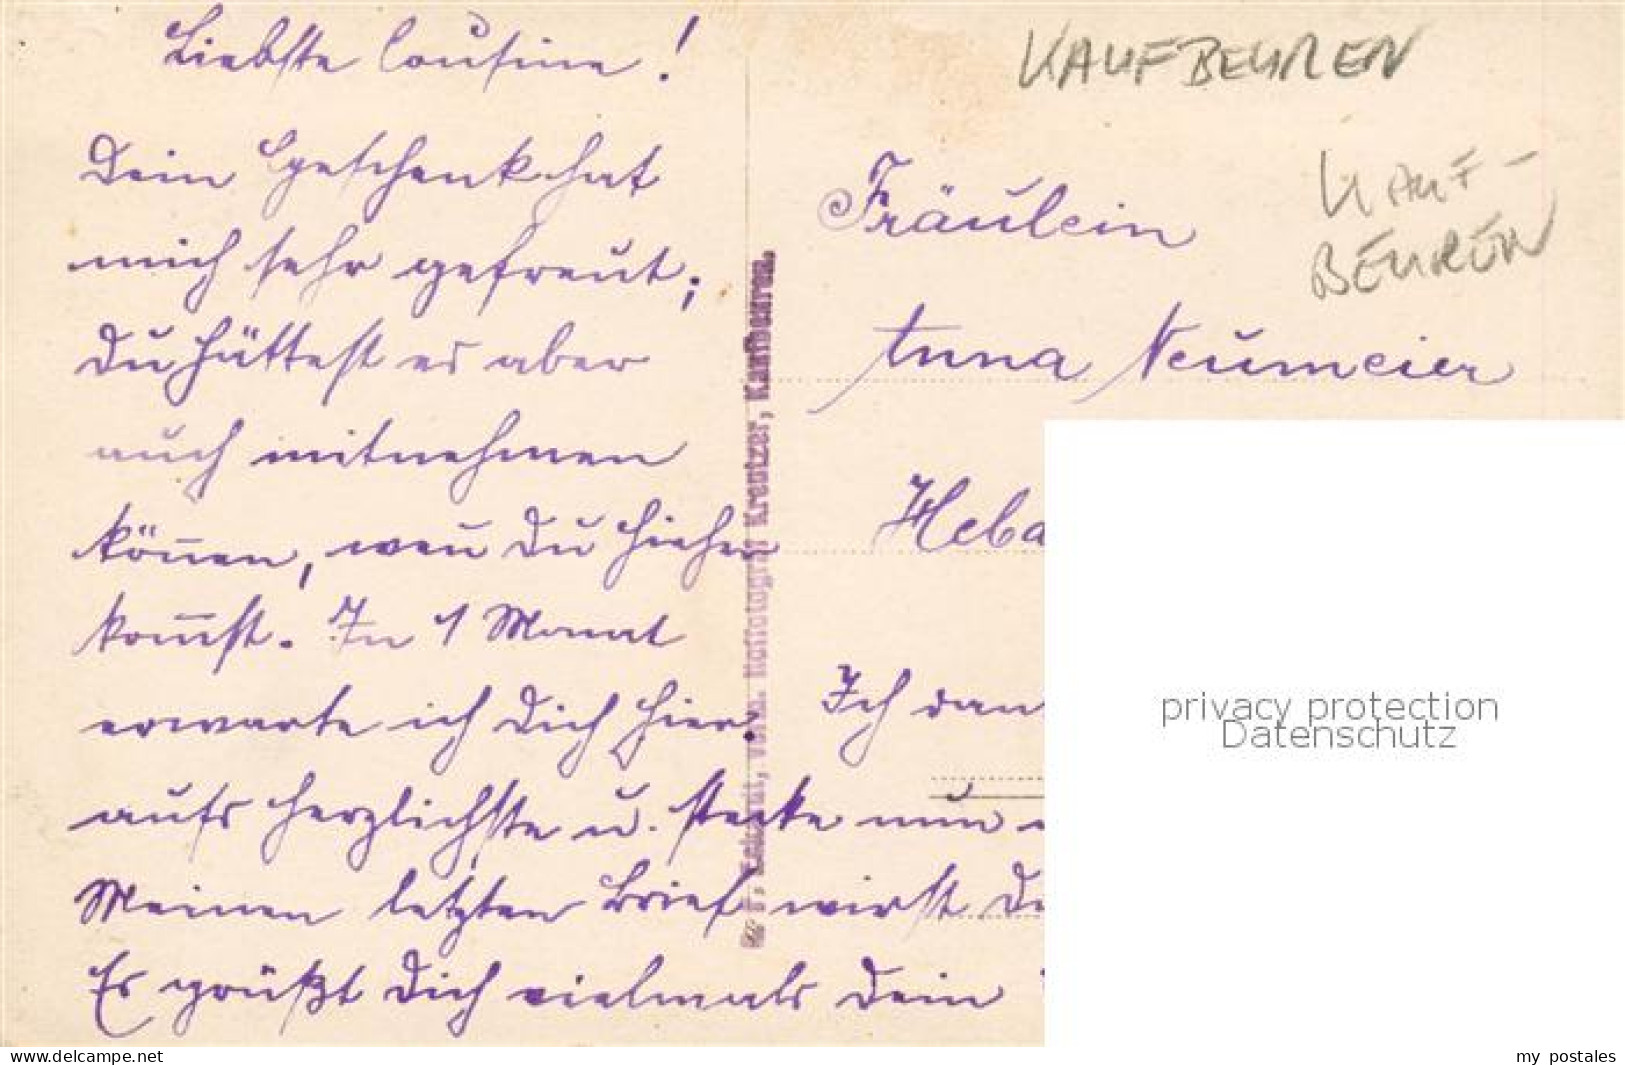 Liebste Cousine!
Dein Geschenk hat
mich sehr gefreut;
Du hättest es aber
auch mitnehmen
können, weñ Du hieher
kom̄st. In 1 Monat
erwarte ich Dich hier
aufs herzlichste u. stecke nun
Meinen letzten Brief wirst D
Es grüßt Dich vielmals Dein
KAUFBEUREN
KAUF-
BEUREN
Fräulein
Anna Neumeier
Heba
Ich dan
Eckardt, vorm. Hoffotograf Kreutzer, Kaufbeuren.
privacy protection
Datenschutz
www.delcampe.net
my_postales